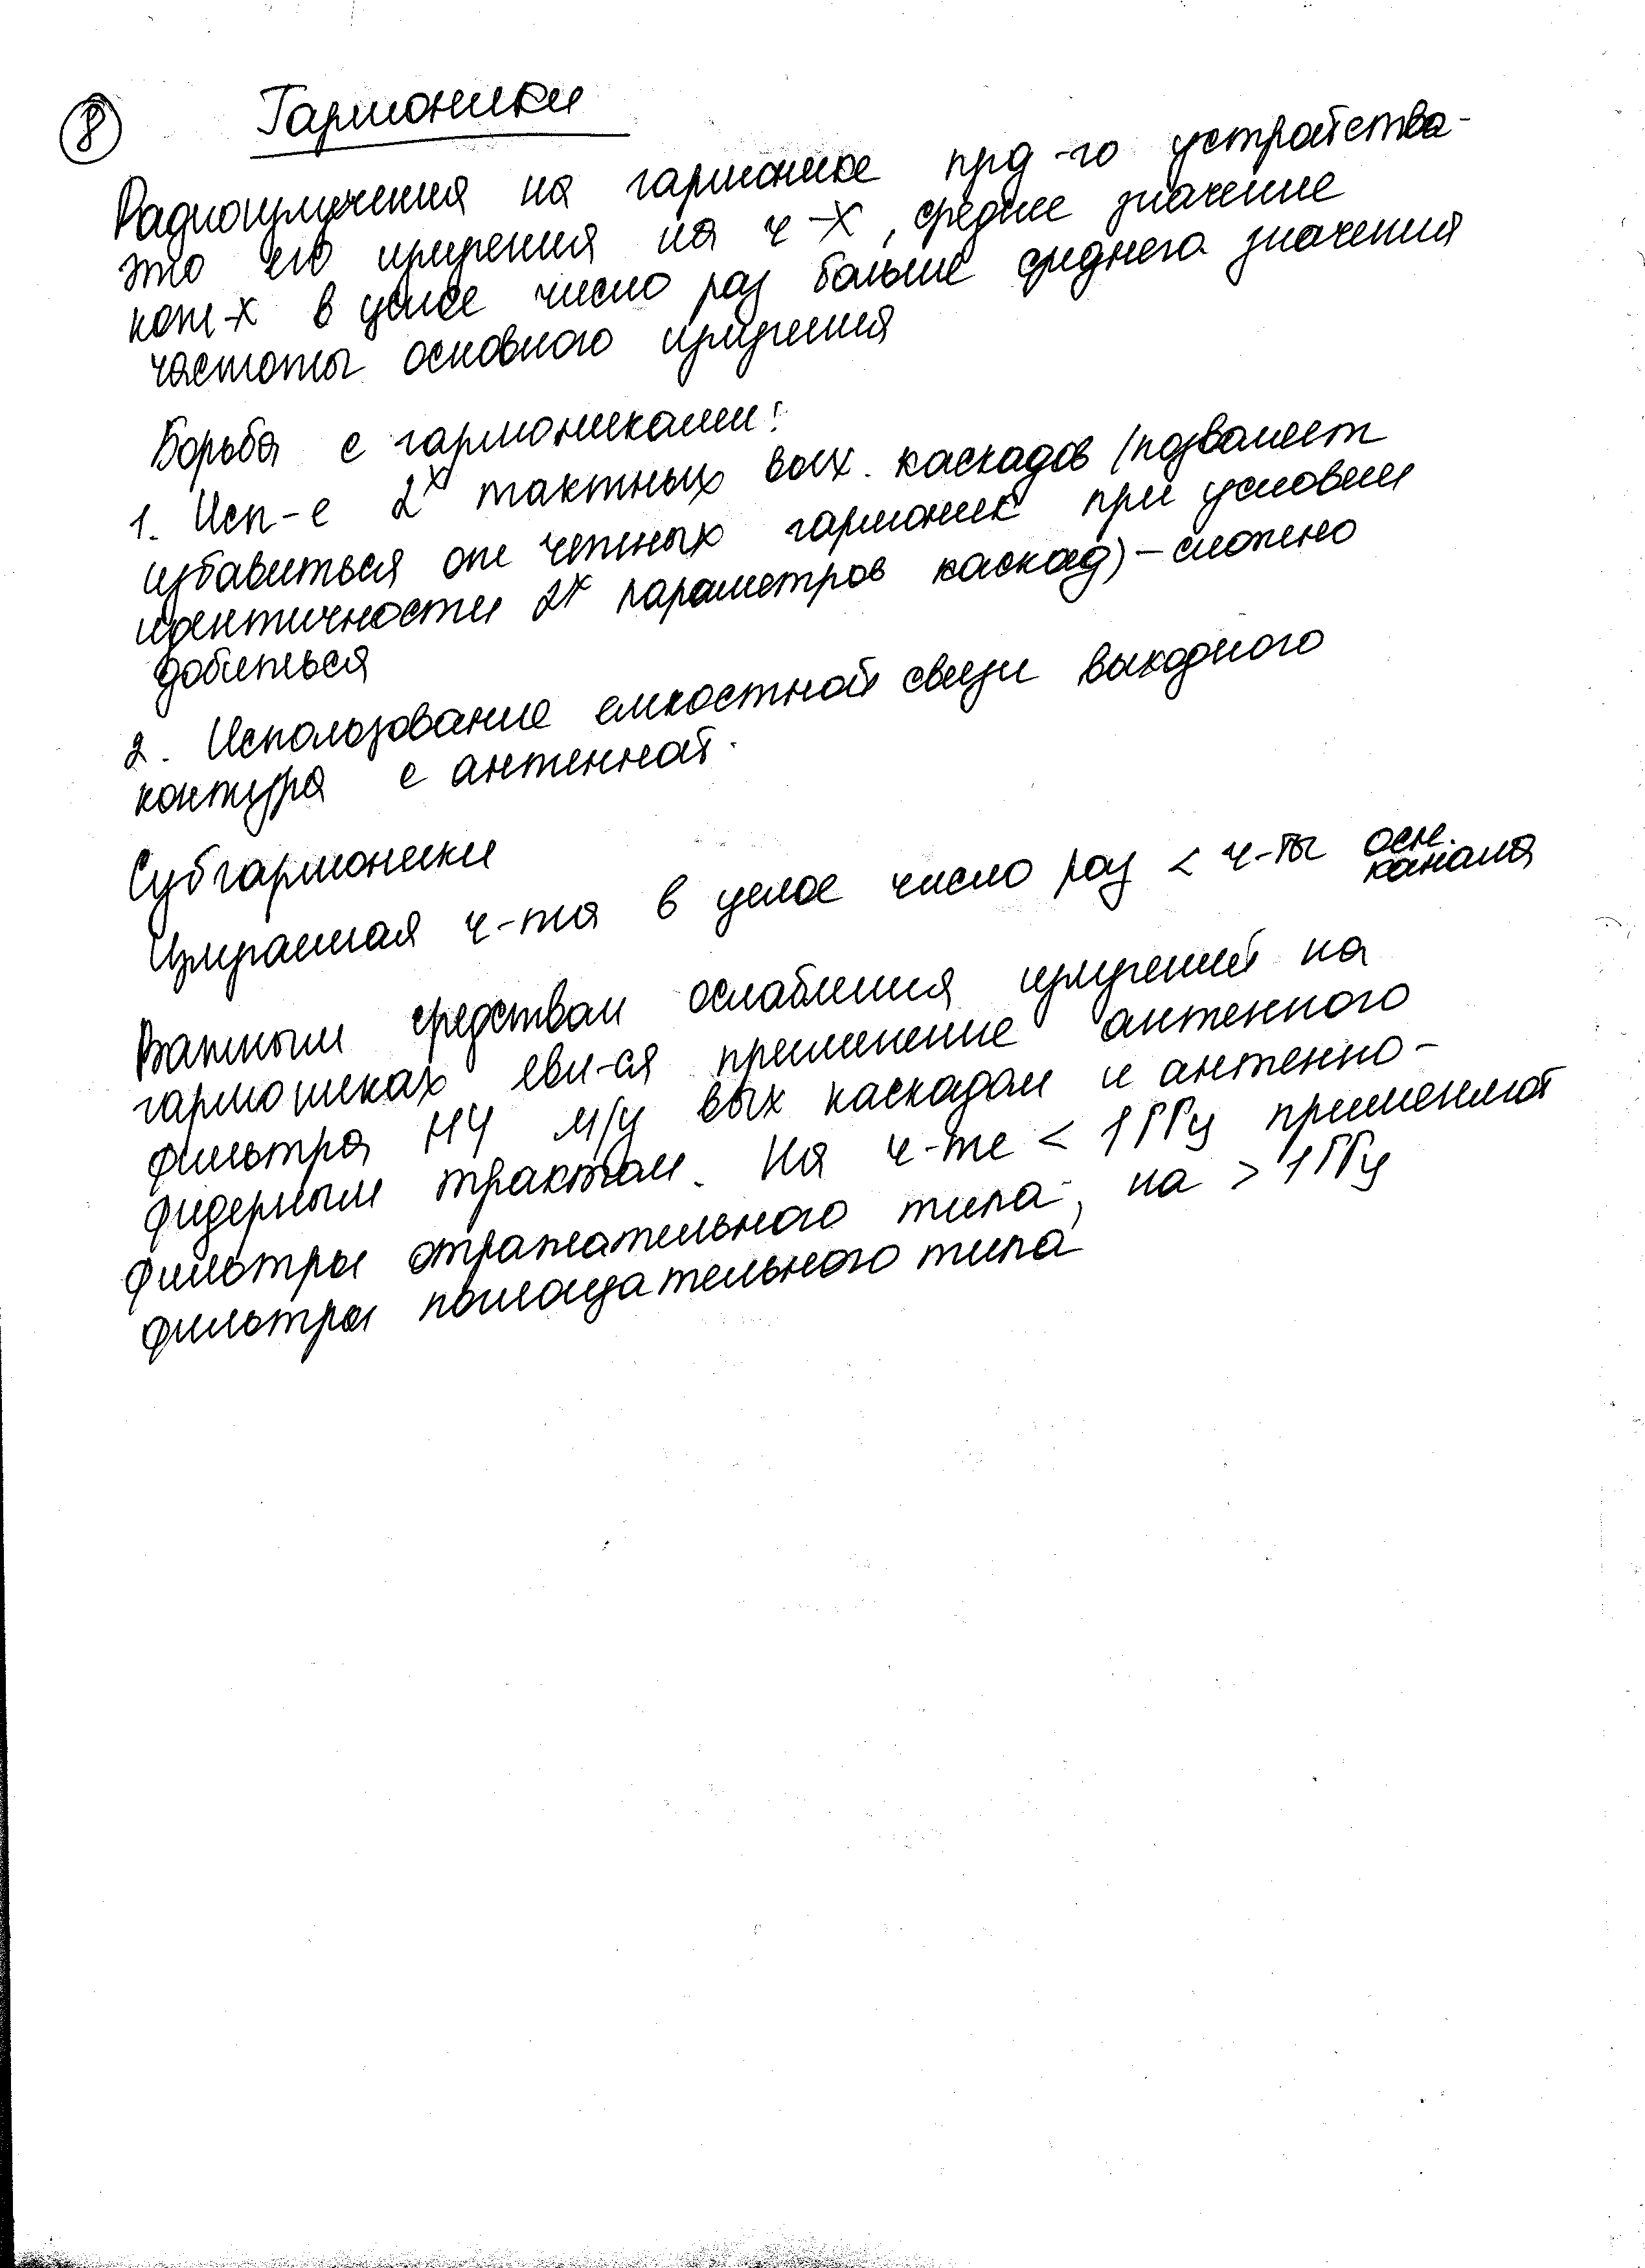 8 Гармоники
Радиоизлучения на гармонике прд-го устройства -
это его излучения на ч-х, средние значение
кот-х в целое число раз больше среднего значения
частоты основного излучения
Борьба с гармониками:
1. Исп-е 2х тактных вых. каскадов (позволяет
избавиться от четных гармоник при условии
идентичности 2х параметров каскад) - сложно
добиться
2. Использование емкостной связи выходного
контура с антенной.
Субгармоники
Излучаемая ч-та в целое число раз < ч-ты осн.
канала
Важным средством ослабления излучений на
гармониках явл-ся применение антенного
фильтра НЧ м/у вых каскадом и антенно-
фидерным трактом. На ч-те < 1 ГГц применяют
фильтры отражательного типа, на > 1 ГГц
фильтры поглощательного типа